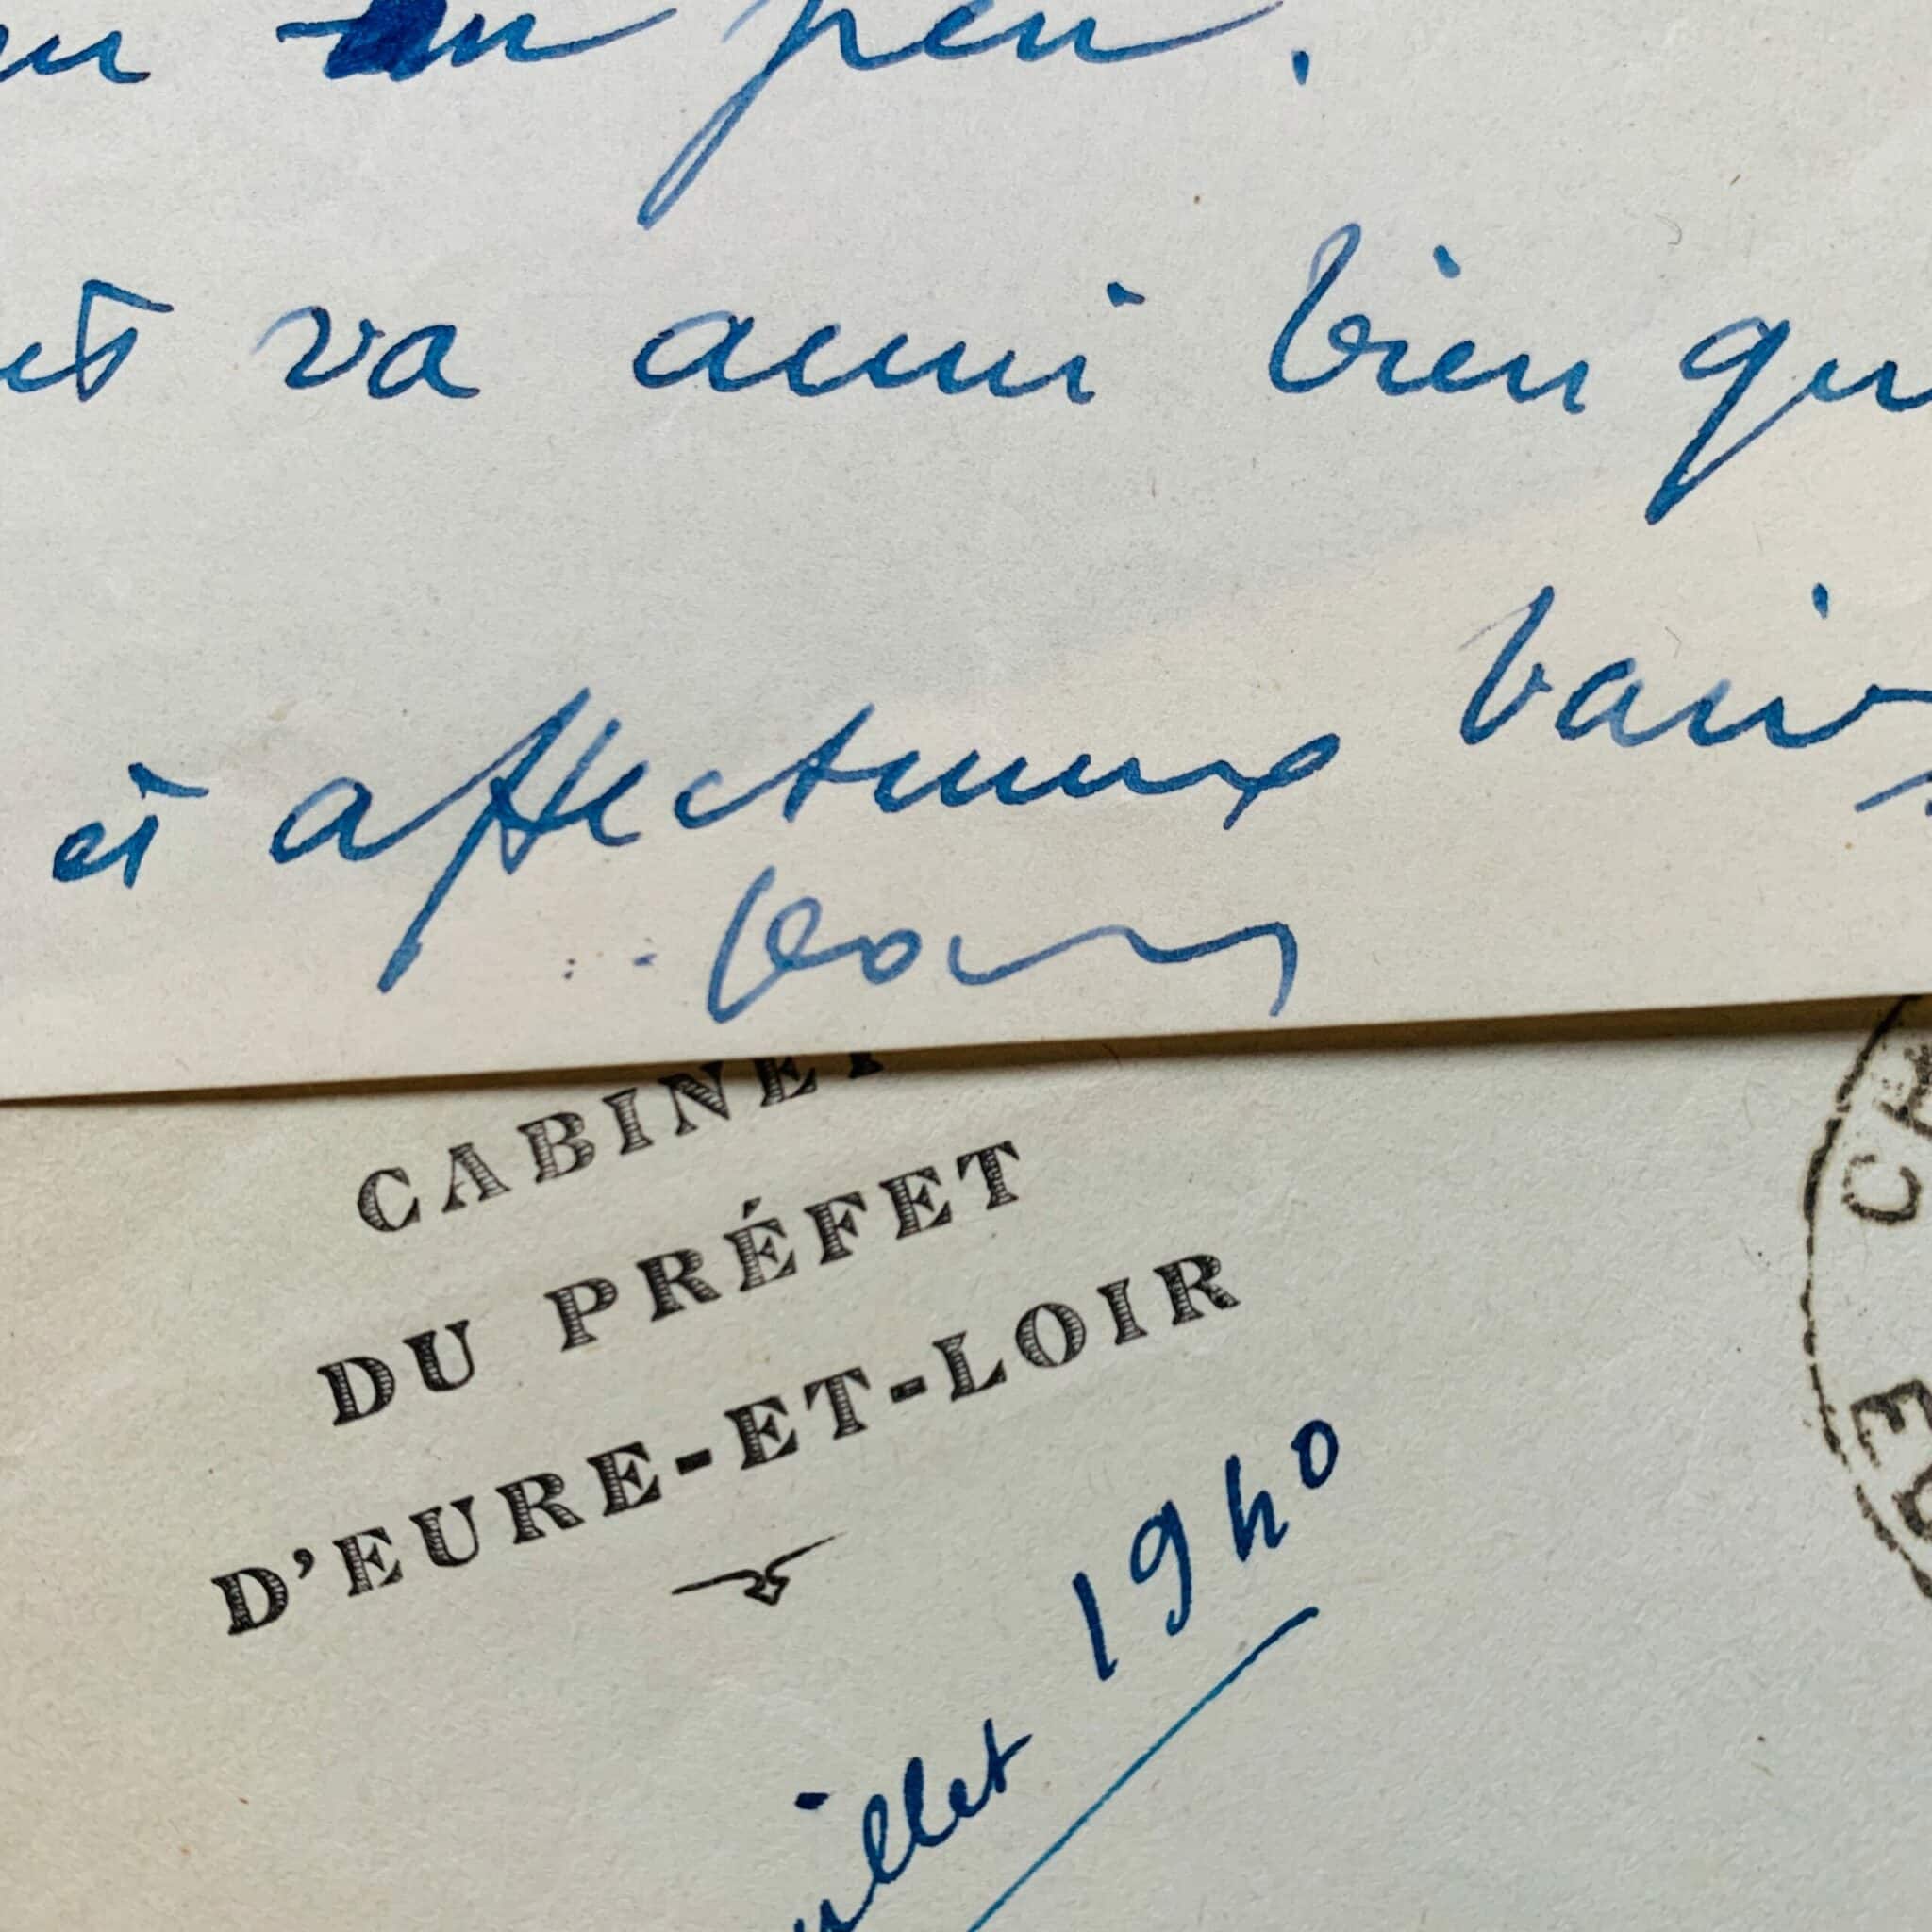 un peu.
va aussi bien qu
et affectueux baise
Jean
CABINET
DU PRÉFET
D'EURE-ET-LOIR
uillet 1940
C
EU